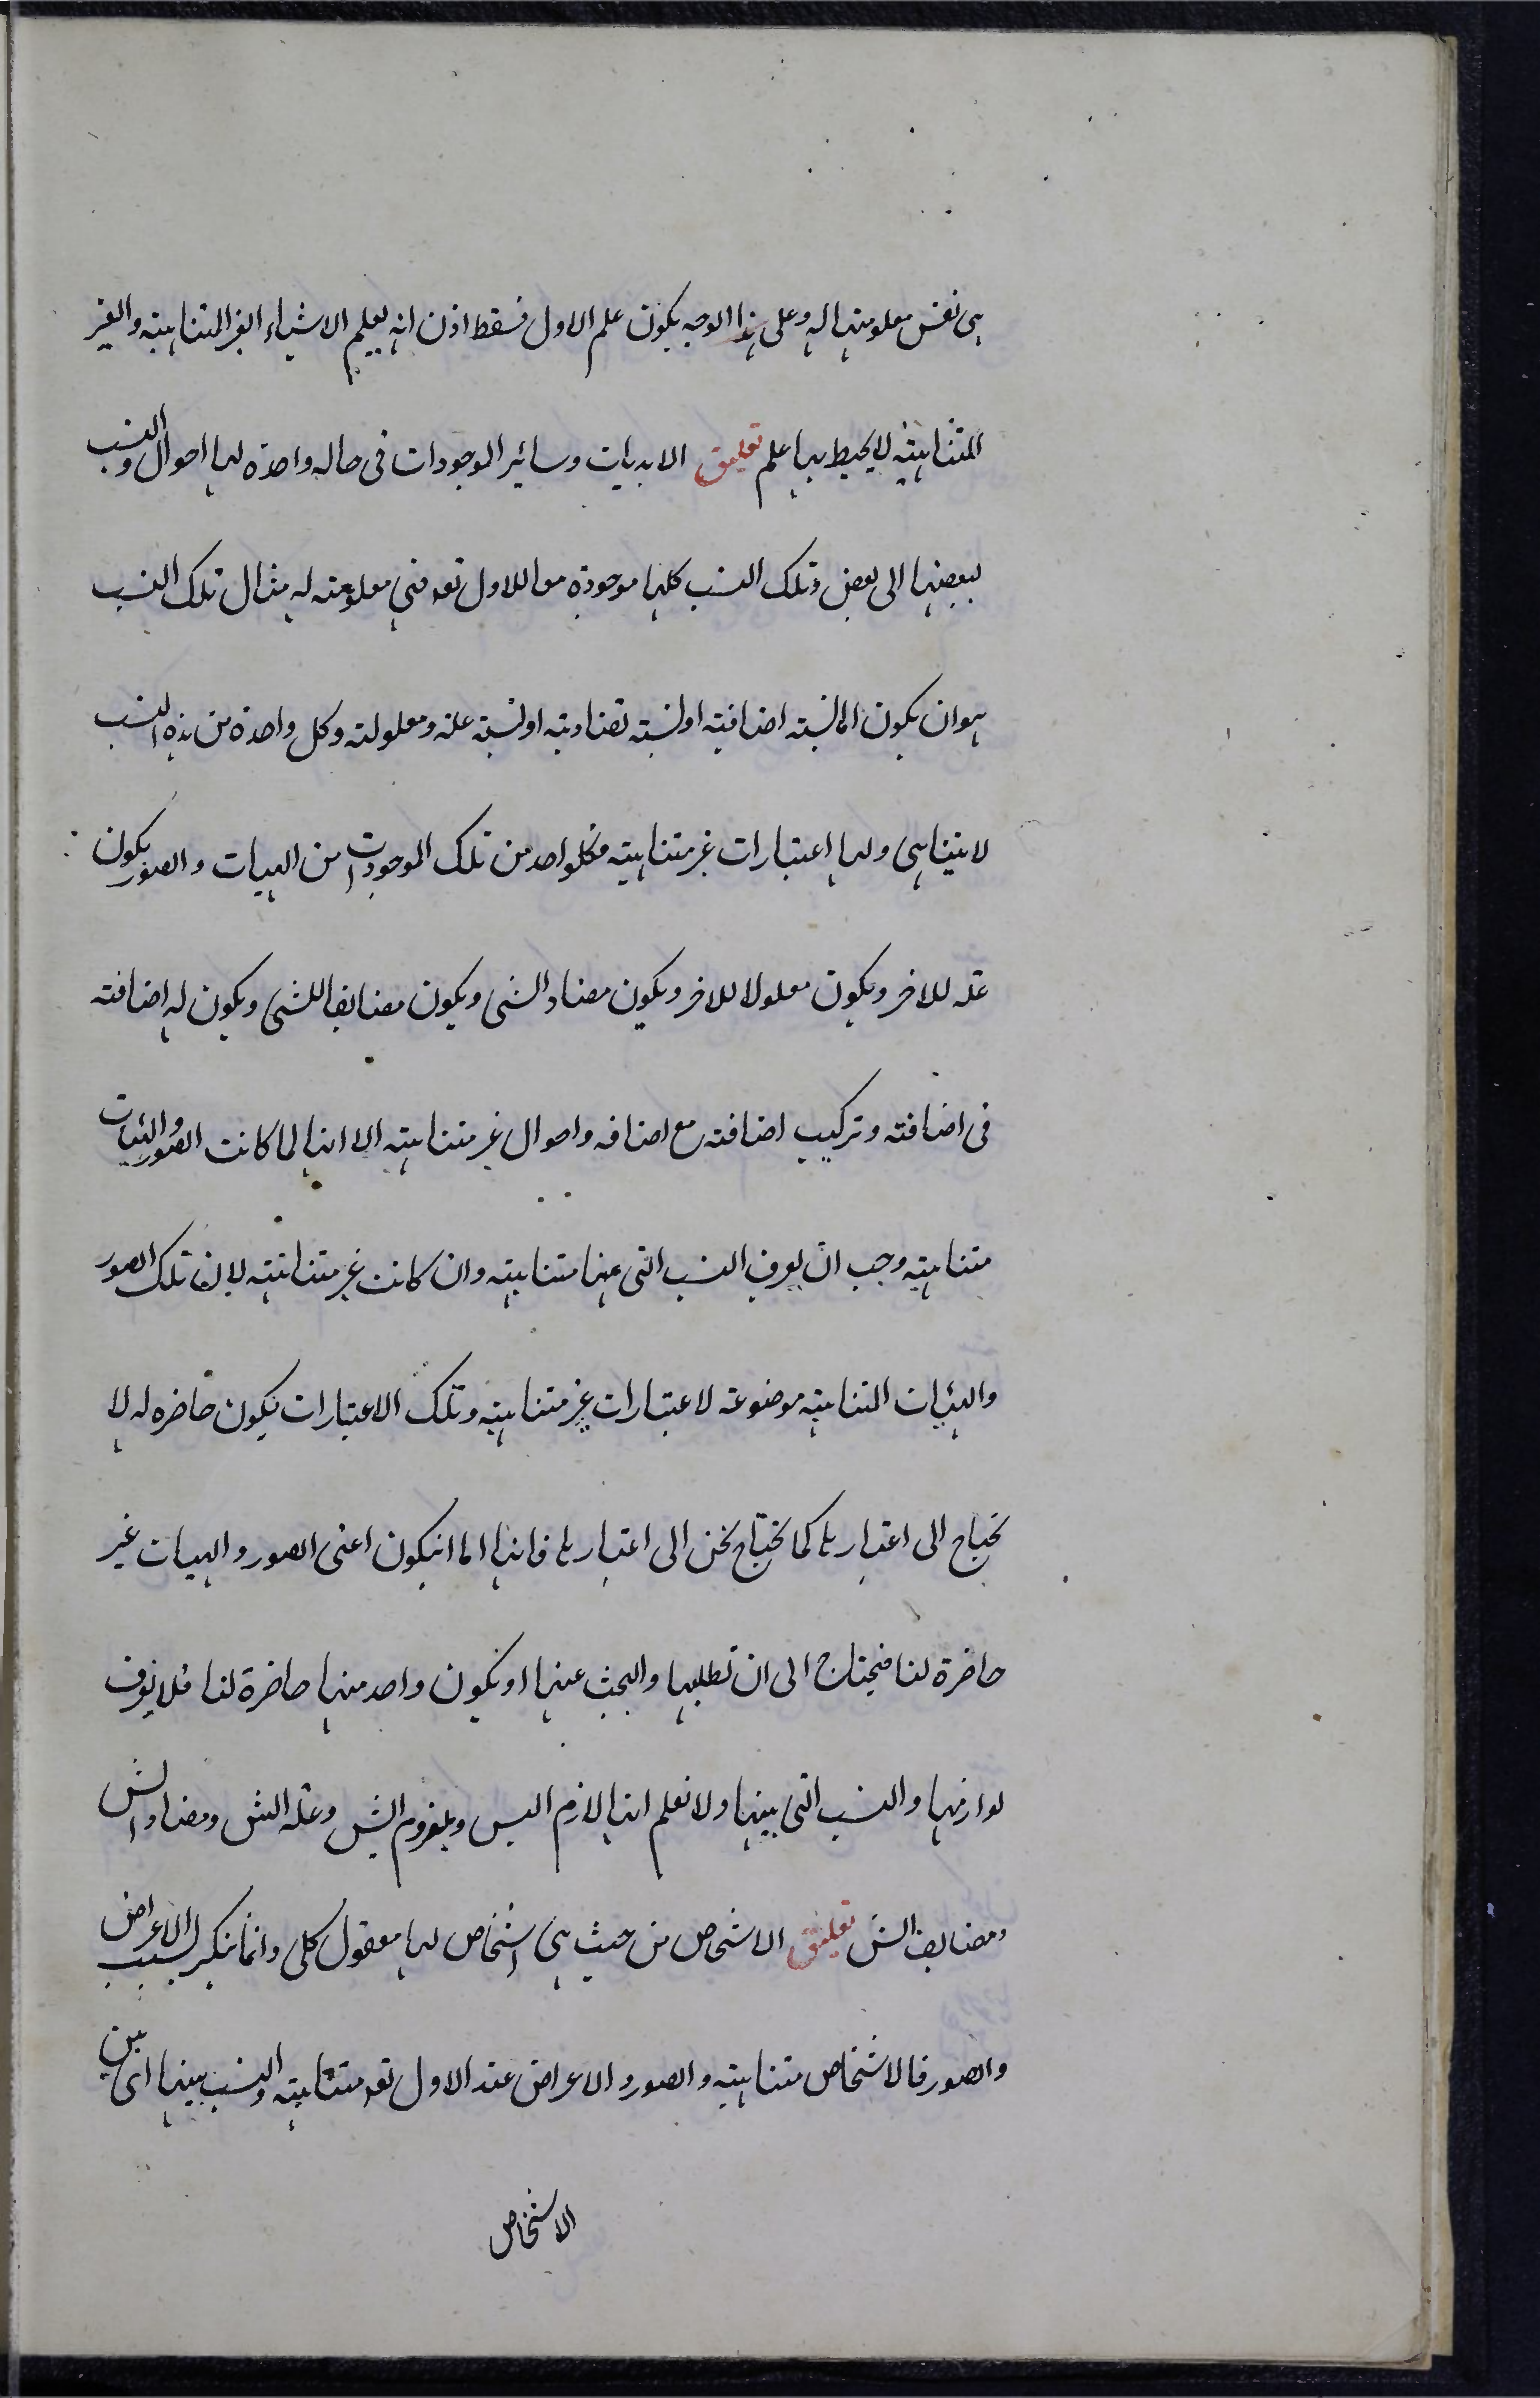 هى نفس معلوميتها له وعلى هذا الوجه يكون علم الاول فسقط اذن انه يعلم الاشياء الغير المتناهية والغير
المتناهية لا يحيط بها علم تعليق الابديات وسائر الموجودات فى حاله واحدة لها احوال ونسب
لبعضها الى بعض وتلك النسب كلها موجودة معا للاول تعه فهى معلومة له مثال تلك النسب
هو ان يكون اما نسبته اضافية او نسبته تضادية او نسبة علة ومعلولته وكل واحدة من هذه النسب
لا يتناهى ولها اعتبارات غير متناهية فكلواحد من تلك الموجودات من الهيات والصور يكون
علة للاخر ويكون معلولا للاخر ويكون مضاد الشى ويكون مضايفا للشى ويكون له اضافة
فى اضافته وتركيب اضافة مع اضافه واحوال غير متناهية الا انها لما كانت الصور والهيئات
متناهية وجب ان يعرف النسب التى بينها متناهية وان كانت غير متناهية لان تلك الصور
والهيئات المتناهية موضوعة لاعتبارات غير متناهية وتلك الاعتبارات يكون حاضره له لا
يحتاج الى اعتبارها كما يحتاج نحن الى اعتبارها فانها اما انيكون اعنى الصور والهيات غير
حاضرة لنا فيحتاج الى ان تطلبها والبحث عنها او يكون واحد منها حاضرة لنا فلا يعرف
لوازمها والنسب التى بينها ولا نعلم انها لازم الشى وملزوم الشى وعلة الشى ومضاد الشى
ومضايف الشى تعليق الاشخاص من حيث هى اشخاص لها معقول كلى وانما يتكثر بسبب الاعراض
والصور فالاشخاص متناهية والصور والاعراض عند الاول تعه متناهية والنسب بينها اى بين
الاشخاص